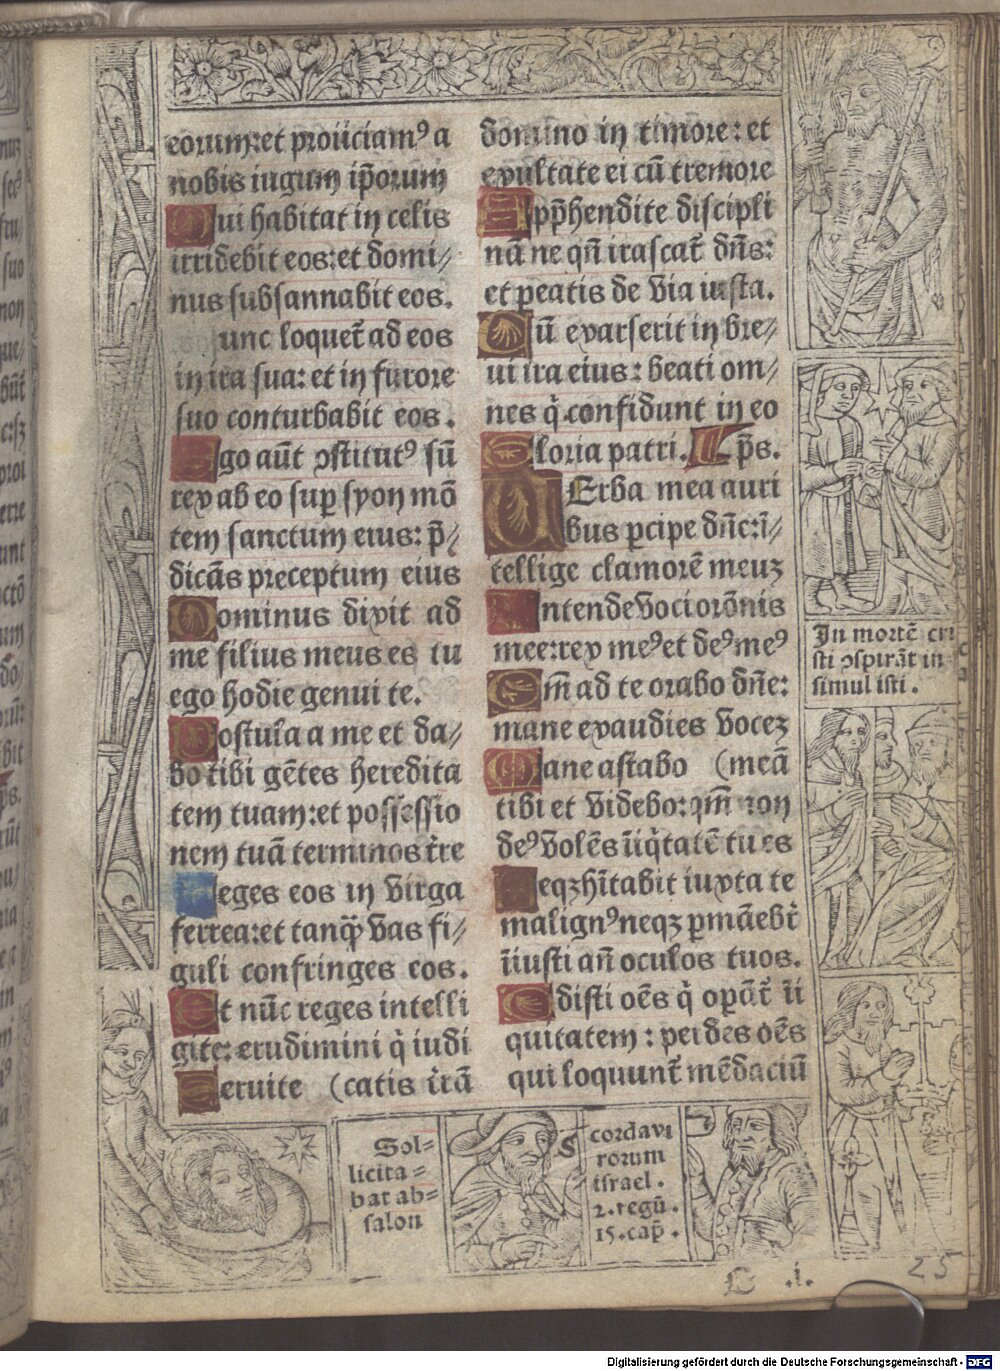 eorum:et proiiciamꝰ a
nobis iugum ip̄orum
Qui habitat in celis
irridebit eos:et domi⸗
nus subsannabit eos.
unc loquet̄ ad eos
in ira sua: et in furore
suo conturbabit eos.
Ego aūt ꝯstitutꝰ sū
rex ab eo suꝑ syon mō
tem sanctum eius: p̄⸗
dicās preceptum eius
Dominus dixit ad
me filius meus es tu
ego hodie genui te.
Postula a me et da⸗
bo tibi gētes heredita
tem tuam:et possessio
nem tuā terminos t̄re
Reges eos in virga
ferrea:et tanqͣ̄ vas fi⸗
guli confringes eos.
Et nūc reges intelli
gite: erudimini q̇ iudi
Seruite (catis t̄rā
domino in timore: et
exultate ei cū tremore
App̄hendite discipli
nā ne qn̄ irascat̄ dn̄s:
et ꝑeatis de via iusta.
Cū exarserit in bre⸗
ui ira eius: beati om⸗
nes q̇ confidunt in eo
Gloria patri. p̄s.
VErba mea auri
bus ꝑcipe dn̄e:ī⸗
tellige clamorē meuꝫ
Intende voci orōnis
mee:rex meꝰ et deꝰ meꝰ
Qm̄ ad te orabo dn̄e:
mane exaudies vocez
Mane astabo (meā
tibi et videbo:qm̄ non
deꝰ volēs īiq̇tatē tu es
Neqꝫ hītabit iuxta te
malignꝰ neqꝫ ꝑmāebt̄
īiusti an̄ oculos tuos.
Odisti oēs q̇ oꝑāt̄ ii
quitatem : perdes oēs
qui loquunt̄ mēdaciū
In mortē cri
sti ꝯspirāt in
simul isti.
Sol⸗
licita⸗
bat ab⸗
salon
cordavi
rorum
israel.
2.regū.
15.cap̄.
C .i.
25
Digitalisierung gefördert durch die Deutsche Forschungsgemeinschaft - DFG